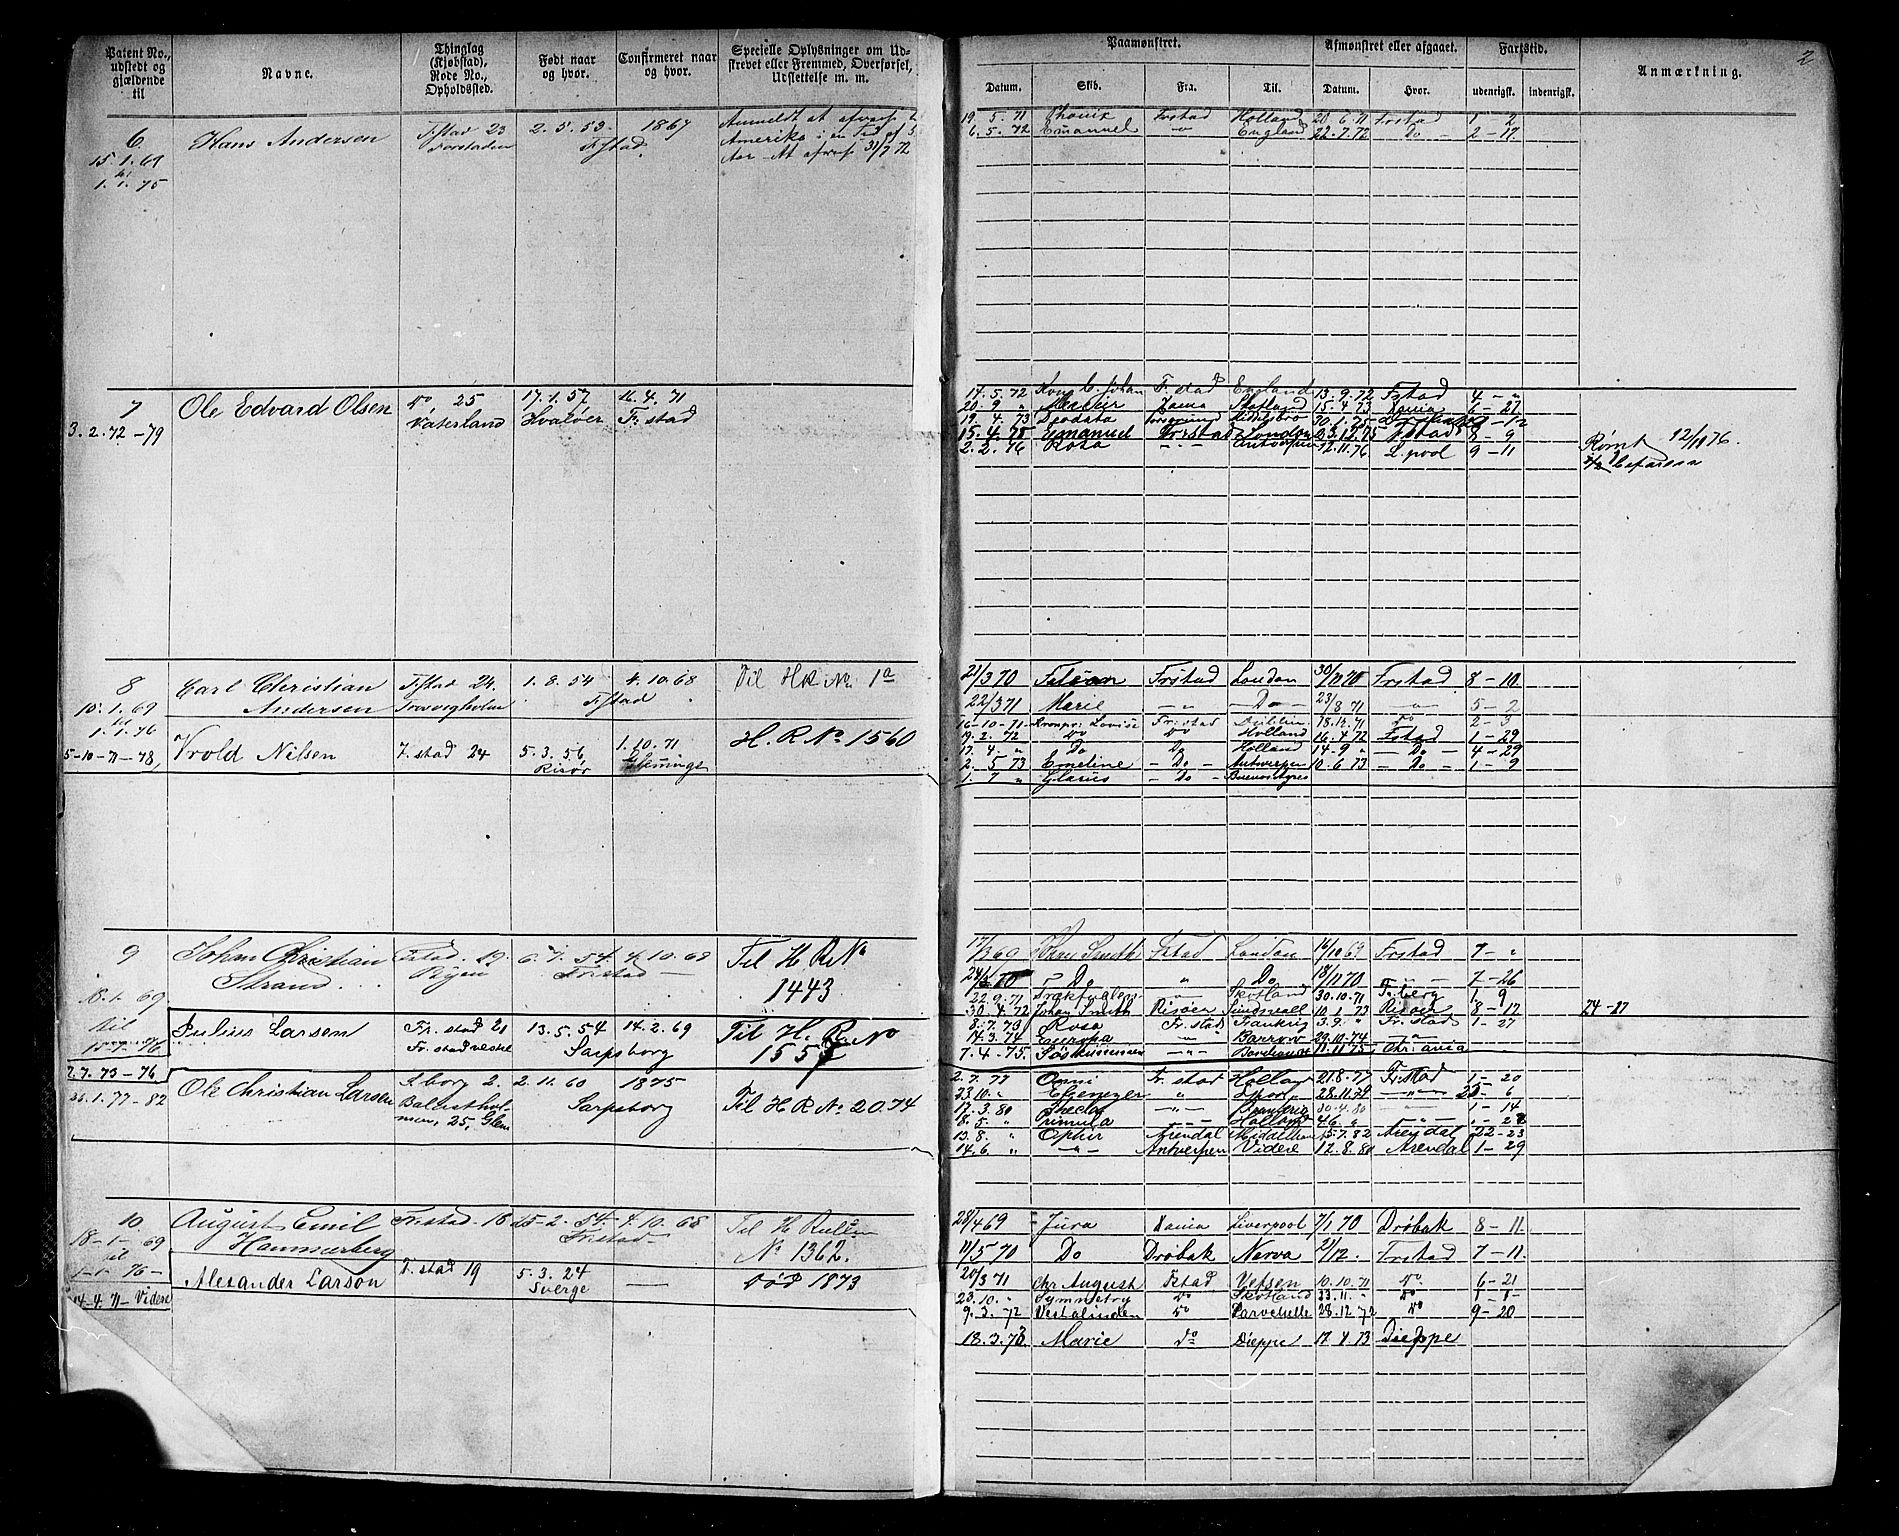 Patent No., udstedt og gjældende til
Navne.
Thinglag (Kjøbstad), Rode No., Opholdssted.
Født naar og hvor.
Confirmeret naar og hvor.
Specielle Oplysninger om Udskrevet eller Fremmed, Overførsel, Udslettelse m. m.
Paamønstret.
Afmønstret eller afgaaet.
Fartstid.
Anmærkning.
2
Datum.
Skib.
Fra.
Til.
Datum.
Hvor.
udenrigsk.
indenrigsk.
6
15.1.69
til
1.1.75
Hans Andersen
F.stad 23
Forstaden
2.5.53.
1867
F.stad
Anmeldt at
Amerika i en Tid af 3
Aar - At 31/7 72
19.5.71 Frstad Holland 20.6.71 Frstad 1 - 2
6.5.72 Emanuel " England 22.7.72 Do - 2 - 17
7
3.2.72 - 79
Ole Edvard Olsen
Do 25
Vaterland
17.1.57
Hvaløer
16.4.71
Fr.stad
17.5.72 Fr.stad England 13.9.72 Fstad 4 - "
20.9 " 15.4.73 6 - 27
19.4.73
15.4.75 Emanuel Fr.stad London 23.12.75 Frstad 8 - 9
2.2.76 Rosa - " - Antverpen 12.11.76 L.pool 9 - 11
Rømt 12/11 76.
8
10.1.69
til
1.1.76
Carl Christian
Andersen
F.stad 24.
Trosvigholm
1.8.54
4.10.68
F.stad
Til H R No 1a
21/3 70 Frstad London Frstad 8 - 10
22/3 71 Marie - " - - Do - 23/8 71 - " - 5 - 2
5-10-71-78
Vrold Nilsen
F.stad 24
5.3.56
Risør
1.10.71
H. R No 1560
16-10-71 Kronpr. Lovise Fr.stad 18.12.71 Do 2 - 3
19.2.72 Do Do Holland 16.4.72 Fstad 1 - 29
17.4. " Do Do Holland 14-9 " - Do - 4 - 29
2.5.73 Emeline - Do - Antverpen 10.6.73 - Do - 1 - 9
1.7 " Glarus - Do - Buenos Ayres
9
18.1.69
til
Johan Christian
Strand
F.stad. 19.
Byen
6.7.54.
4.10.68
Fr.stad -
Til H R No
1443
17/3 69 John Smith F.stad London 16/10 69 Frstad 7 - "
Do " Do 18/11 70 - 7 - 26
22.9.71 Skotland 30.10.71 1 9
30.4.72 Johan Smith Risøer Sundsvall 10.1.73 Risøer 8 - 17
24 - 27
2.7.73 - 76
Julius Larsen
Fr.stad 21
Fr.stad vestre
13.5.54
14.2.69
Sarpsborg
Til H. R No
1557
8.7.73 Rosa Fr.stad Frankrig 3.9. " Fr.stad 1 - 27
14.3.74 Europa " Barrow 29.10-74 "
7.4-75. - " - 11.11.75 Chr.ania
26.1.77-82
Ole Christian Larsen
S.borg 2.
Ballastholmen, 25, Glem
2.11.60
1875
Sarpsborg
Til H R No 2074
2.7.77 Fr.stad Holland 21.8.77 Fr.stad 1 - 20
23.10. " Ebenezer " 28.11.79 - " - 25 - 6
17.3.80 - " - 30.4.80 1 - 14
18.5. " Primula - " - Holland - " -
13.8. " Ophir Arendal 15.7.82 Arendal 22 - 23
14.6. " - " - Antverpen Videre 12.8.80 Arendal 1 - 29
10
18-1-69
til
1-1-76-
August Emil
Hammerberg
Fr.stad. 18
25-2.54.
4.10.68
Fr.stad -
Til H Rullen
No 1362.
28/4 69 Jura Liverpool 7/1 70 Drøbak 8 - 11
11/5 70 Do Drøbak Nerva 21/12. Frstad 7 - 11
14-4.71- Videre
Alexander Larson
F.stad 19
5.3.24
Sverge
-
død 1873
20/3 71 Chr August F.stad Vefsen 10.10.71 Do 6 - 21
23.10. " Symmetry Do Skotland 23.11. " Do 1 - 1
9.3.72 Vestalinden Do 28.12.72 Do 9 - 20
18.3.73. Marie Do Dieppe 12.8.73 Dieppe